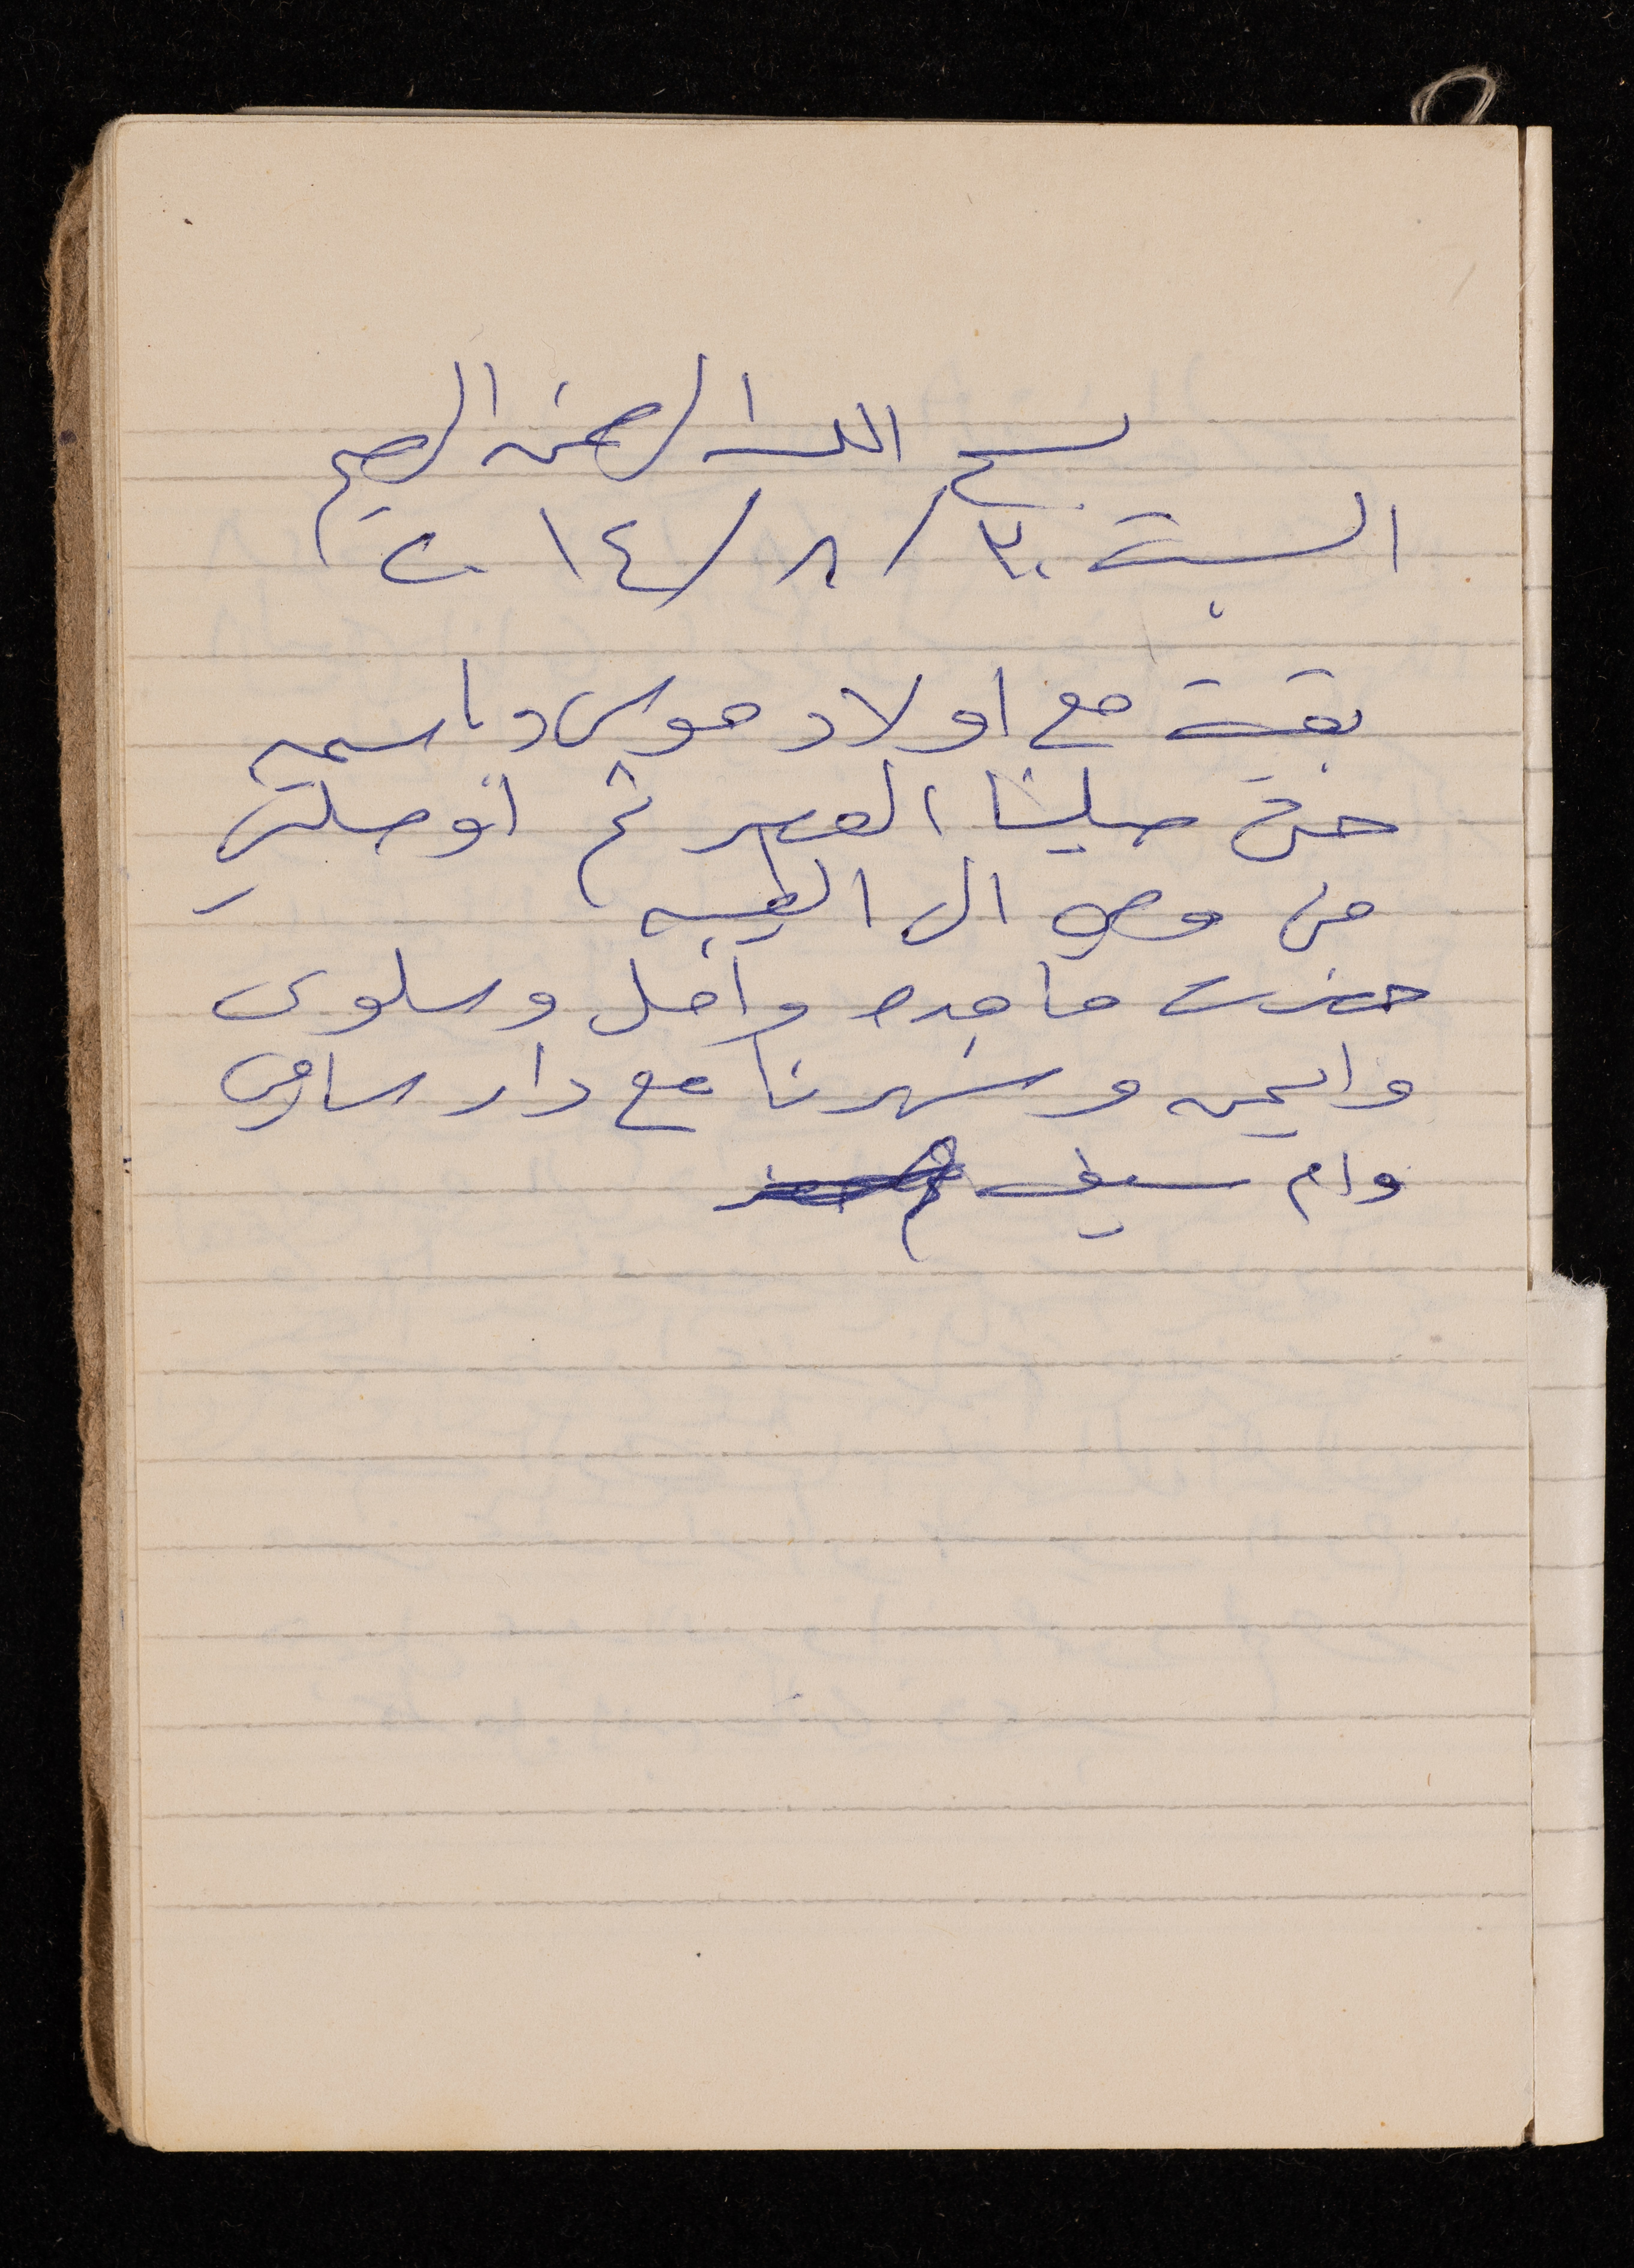 بسم الله الرحمن الرحيم
السبت ٣٠/٨/٢٠١٤
بقيت مع اولاد موسى وباسمه
حتى صلينا العصر ثم اوصلتني
الى الطيبه
حضرت ماجده وامل وسلوى
وايمن وسهرنا مع دار سامي
وام سيف